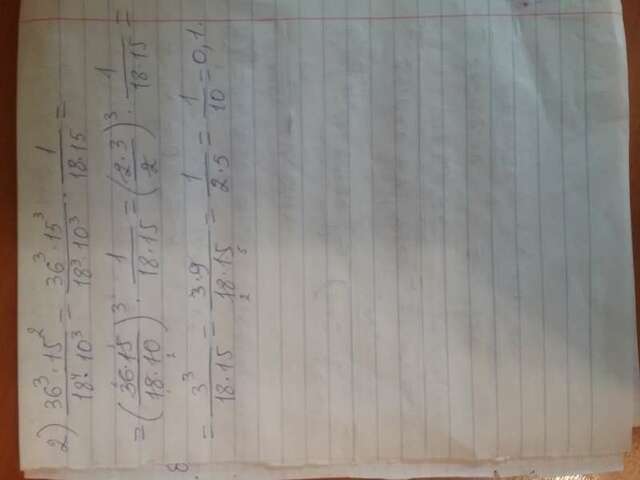 2) 36³·15²/18⁴·10³ = 36³·15³/18³·10³ · 1/18·15 =
= (36·15/18·10)³ · 1/18·15 = (2·3/2)³ · 1/18·15 =
= 3³/18·15 = 3·9/18·15 = 1/2·5 = 1/10 = 0,1.